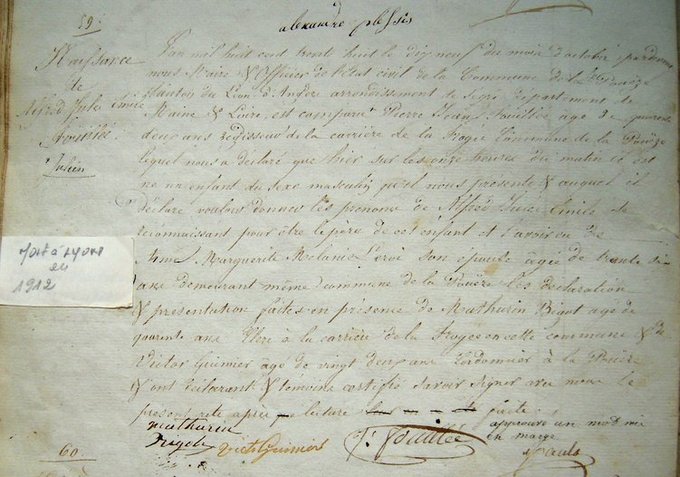 alexandre plessis
59
Naissance
de
Alfred Jules Emile
Julien
L'an mil huit cent trente huit le dix neuf du mois d'octobre pardevant
nous Maire & Officier de l'état civil de la Commune de la Pouëze
Canton du Lion d'Angers arrondissement de Segré, département de
Maine & Loire, est comparu Pierre Jean agé de quarante
deux ans régisseur de la carrière de la Fogée Commune de la Pouëze
lequel nous a déclaré que hier sur les onze heures du matin il est
né un enfant du sexe masculin qu'il nous présente & auquel il
déclare vouloir donner les prénoms de Alfred Jules Emile se
reconnaissant pour être le père de cet enfant et l'avoir eu de
Anne Marguerite Melanie son epouse agée de trente six
ans demeurant même commune de la Pouëze. Les déclaration
& présentation faites en présence de Mathurin Bigot agé de
quarente ans à la carrière de la Fogée en cette commune & de
Victor Grimier agé de vingt deux ans Cordonnier à la Pouëze
& ont déclarant & temoins certifié savoir signer avec nous le
present acte apres lecture faite
mathurin
Bigot
Victor Grimier
approuvé un mot mis
en marge
Mort à Lyons
en
1912
60